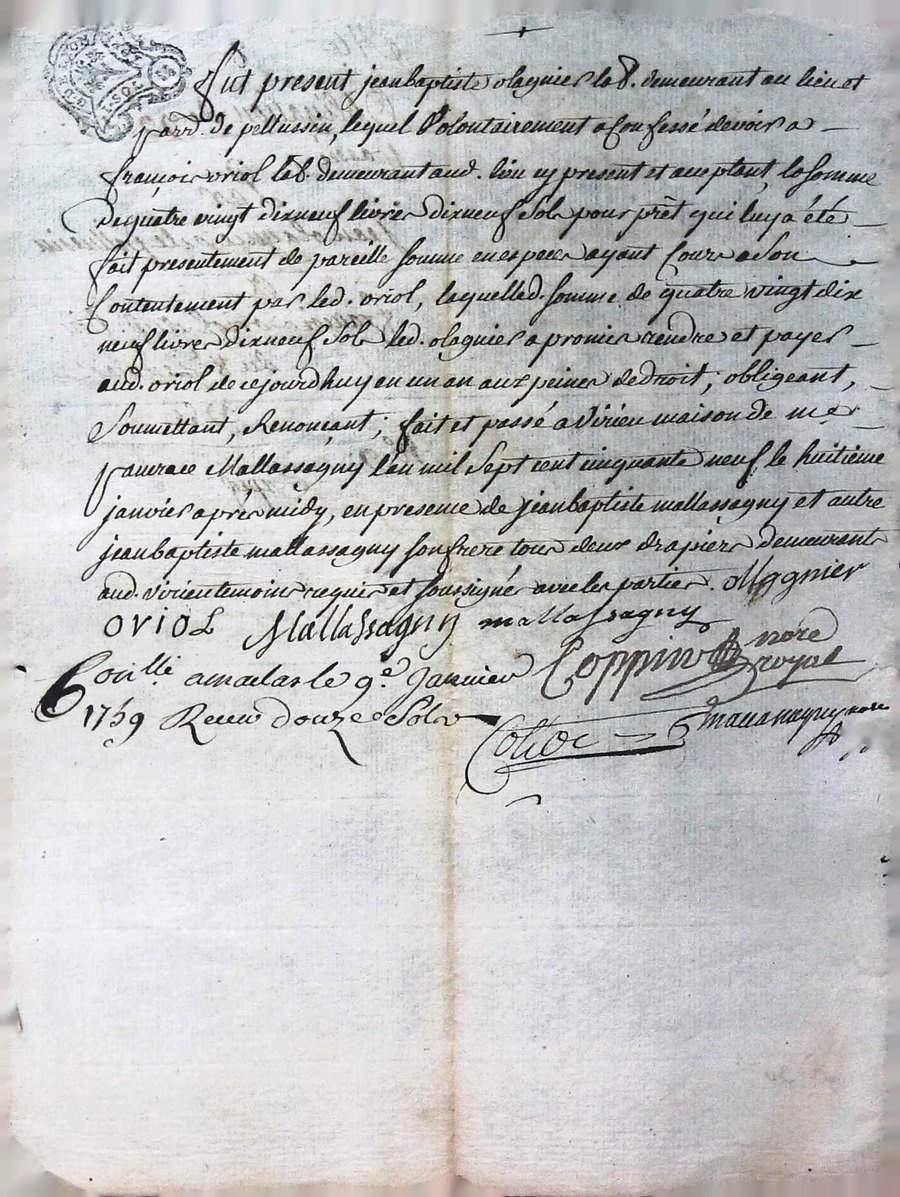 fut present jeanbaptiste olagnier lab. demeurant au lieu et
parr. de pellussin, lequel volontairement a confessé devoir a
françois oriol lab. demeurant aud. lieu cy present et acceptant, la somme
de quatre vingt dixneuf livres dixneuf sols pour prêt qui luy a été
fait presentement de pareille somme en especes ayant cours a son
contentement par led. oriol, laquelle d. somme de quatre vingt dix
neuf livres dixneuf sols led. olagnier a promis rendre et payer
aud. oriol de cejourdhuy en un an aux peines de droit; obligeant,
soumettant, renonçant; fait et passé a virieu maison de me
pancrace Mallassagny l'an mil sept cent cinquante neuf, le huitième
janvier après midy, en presence de jeanbaptiste mallassagny et autre
jeanbaptiste mallassagny son frere tous deux drapiers demeurant
aud. virieu temoins requis et soussignés avec les parties. Ollagnier
oriol Mallassagny mallassagny
Coppin nore
royal
Conllé a malas le 9e Janvier
1759 Receu douze sols